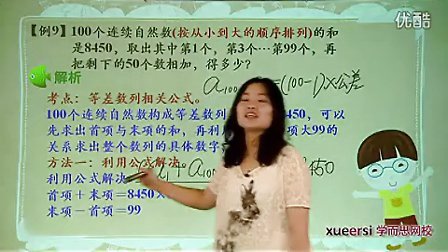 优酷
【例9】100个连续自然数(按从小到大的顺序排列)的和
是8450,取出其中第1个,第3个…第99个,再
把剩下的50个数相加,得多少?
解析
(100-1)×公差
考点:等差数列相关公式。
100个连续自然数构成等差数列
,可以
先求出首项与末项的和,再利
大99的
关系求出整个数列的具体数字
方法一:利用公式解决
利用公式解决
首项+末项=8450×
末项-首项=99
xueersi 学而思网校